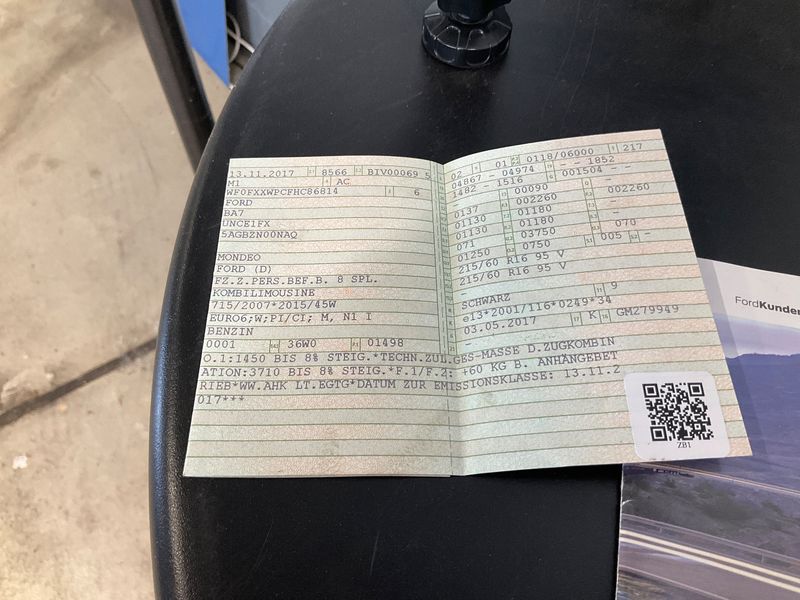 13.11.2017 8566 BIV00069 5
M1 AC
WF0FXXWPCFHC86814 6
FORD
BA7
UNCE1FX
5AGBZN00NAQ
MONDEO
FORD (D)
FZ.Z.PERS.BEF.B. 8 SPL.
KOMBILIMOUSINE
715/2007*2015/45W
EURO6;W;PI/CI; M, N1 I
BENZIN
0001 36W0 01498
02 01 0118/06000 217
04867 - 04974 - - 1852
1482 - 1516 001504 - -
- 00090 002260
0137 002260 - -
01130 01180 -
01130 01180 070
071 03750 005 -
01250 0750
215/60 R16 95 V
215/60 R16 95 V
-
SCHWARZ 9
e13*2001/116*0249*34
03.05.2017 K GM279949
-
O.1:1450 BIS 8% STEIG.*TECHN.ZUL.GES-MASSE D.ZUGKOMBIN
ATION:3710 BIS 8% STEIG.*F.1/F.2: +60 KG B. ANHÄNGEBET
RIEB*WW.AHK LT.EGTG*DATUM ZUR EMISSIONSKLASSE: 13.11.2
017***
ZB1
FordKunden